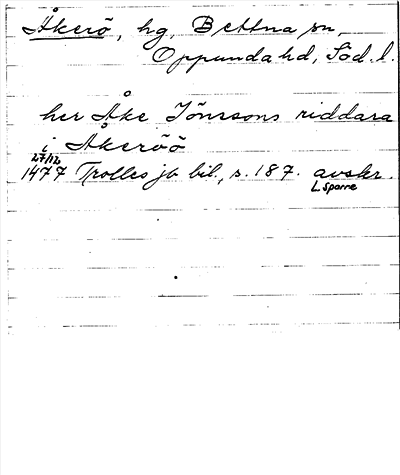 Åkerö, hg, Bettna sn,
Oppunda hd, Söd. l.
her Åke Jönssons riddara
i Åkeröö
27/12
1477 Trolles jb bil., s. 187. avskr.
L Sparre